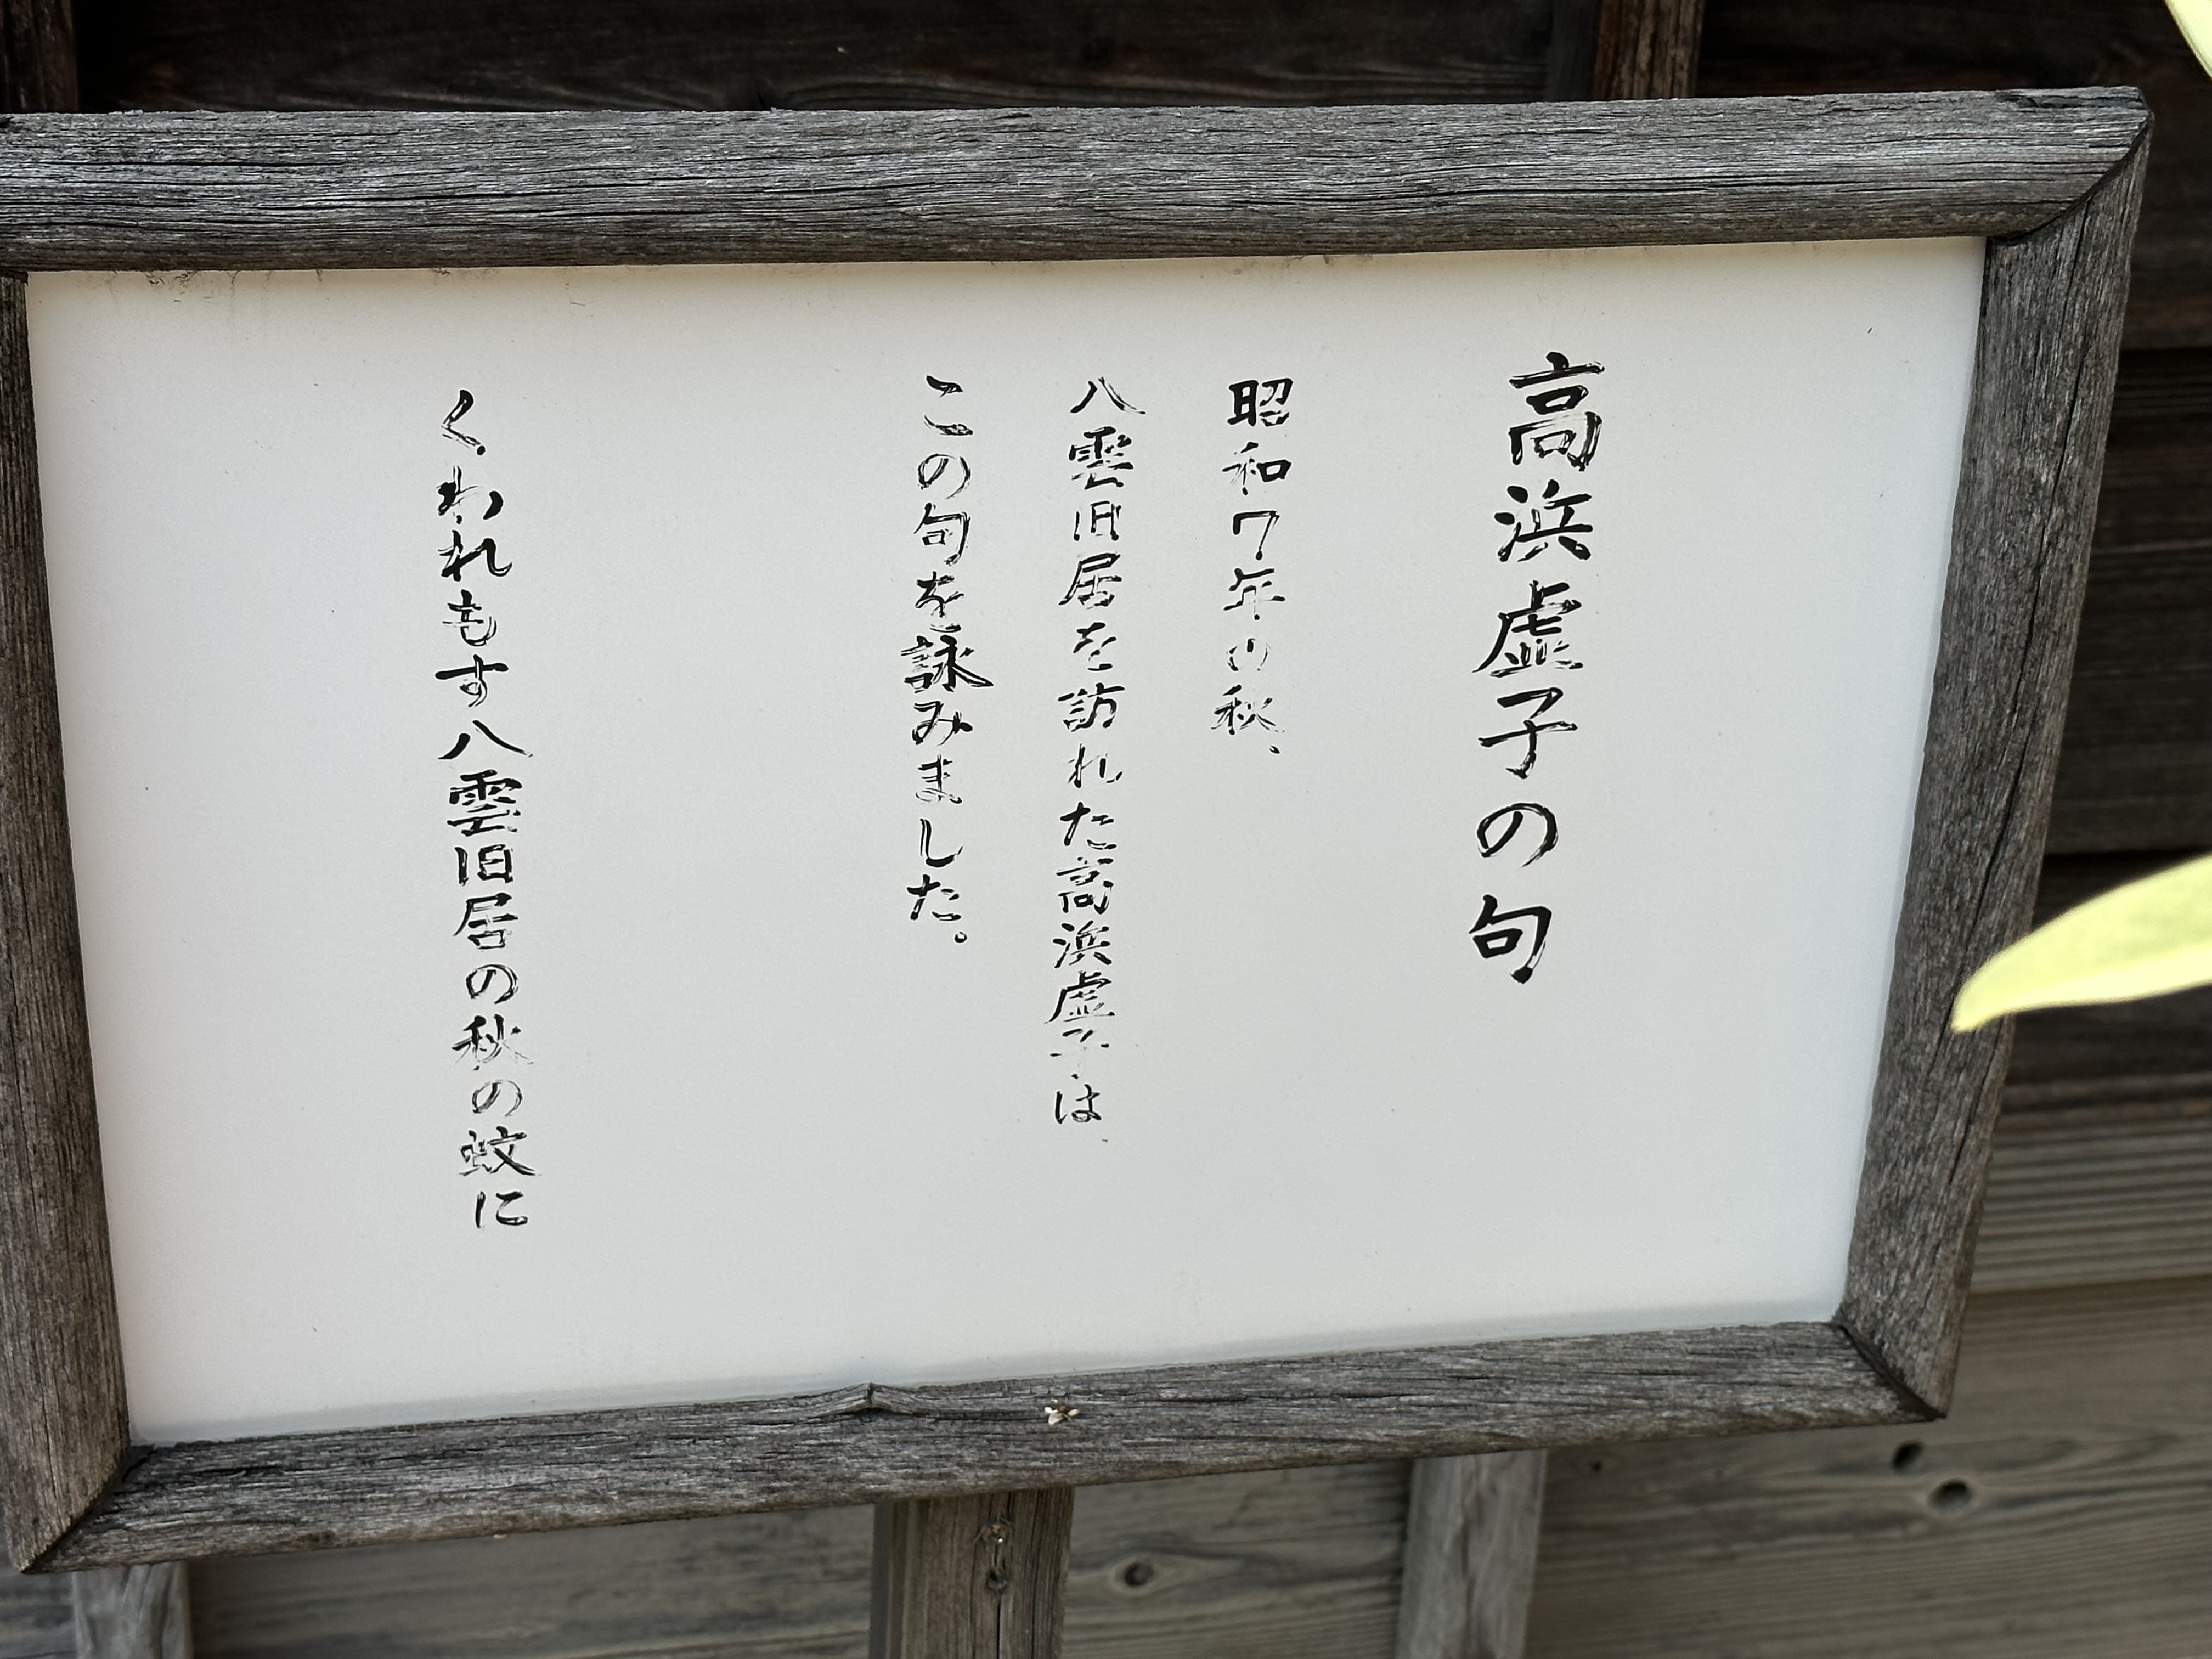 高浜虚子の句
昭和7年の秋、
八雲旧居を訪れた高浜虚子は、
この句を詠みました。
くわれもす八雲旧居の秋の蚊に